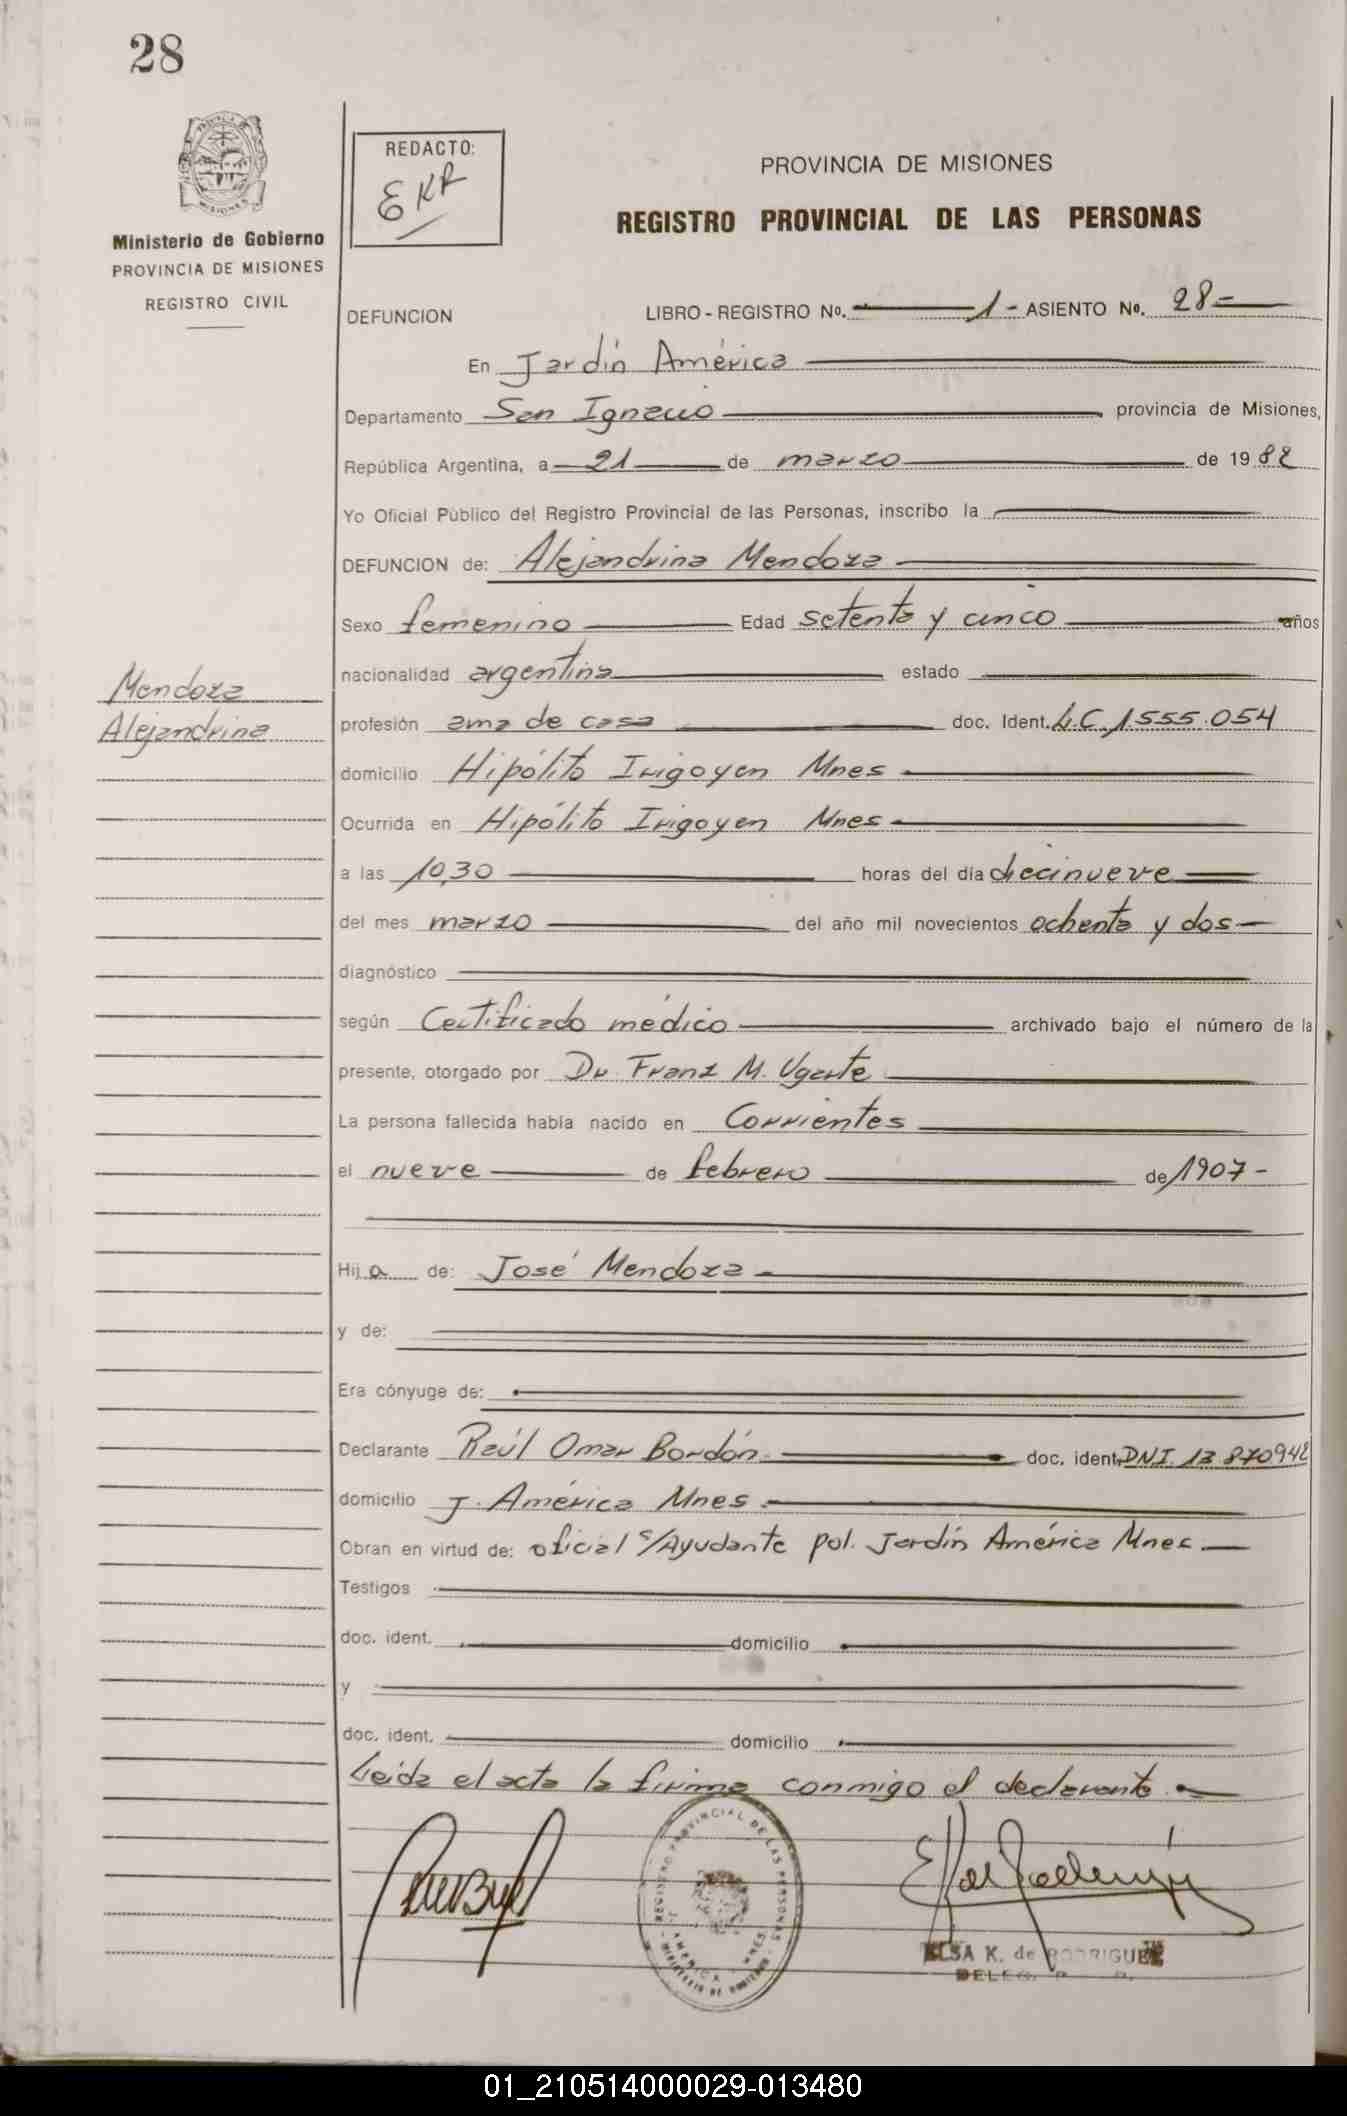 28
MISIONES
Ministerio de Gobierno
PROVINCIA DE MISIONES
REGISTRO CIVIL
REDACTO:
EKR
PROVINCIA DE MISIONES
REGISTRO PROVINCIAL DE LAS PERSONAS
DEFUNCION LIBRO - REGISTRO No. 1 - ASIENTO No. 28 -
En Jardín América
Departamento San Ignacio provincia de Misiones,
República Argentina, a 21 de marzo de 1982
Yo Oficial Público del Registro Provincial de las Personas, inscribo la
DEFUNCION de: Alejandrina Mendoza
Sexo femenino Edad setenta y cinco años
nacionalidad argentina estado
Mendoza
Alejandrina
profesión ama de casa doc. Ident. L.C. 1.555.054
domicilio Hipólito Irigoyen Mnes
Ocurrida en Hipólito Irigoyen Mnes
a las 10,30 horas del día diecinueve
del mes marzo del año mil novecientos ochenta y dos
diagnóstico
según Certificado médico archivado bajo el número de la
presente, otorgado por Dr. Franz M. Ugarte
La persona fallecida había nacido en Corrientes
el nueve de febrero de 1907 -
Hija de: José Mendoza
y de:
Era cónyuge de:
Declarante Raúl Omar Bordón doc. ident. DNI. 13.870942
domicilio J. América Mnes
Obran en virtud de: oficial s/Ayudante pol. Jardín América Mnes
Testigos
doc. ident. domicilio
y
doc. ident. domicilio
Leida el acta la firma conmigo el declarante.
REGISTRO PROVINCIAL DE LAS PERSONAS
J. AMERICA - MNES.
MINISTERIO DE GOBIERNO
ELSA K. de RODRIGUEZ
01_210514000029-013480